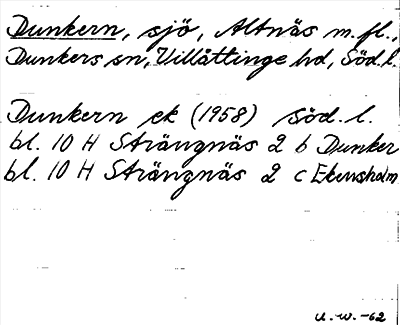 Dunkern, sjö, Altnäs m. fl.,
Dunkers sn, Villåttinge hd, Söd. l.
Dunkern ek (1958) Söd. l.
bl. 10 H Strängnäs 2 b Dunker
bl. 10 H Strängnäs 2 c Ekensholm
U. W. -62